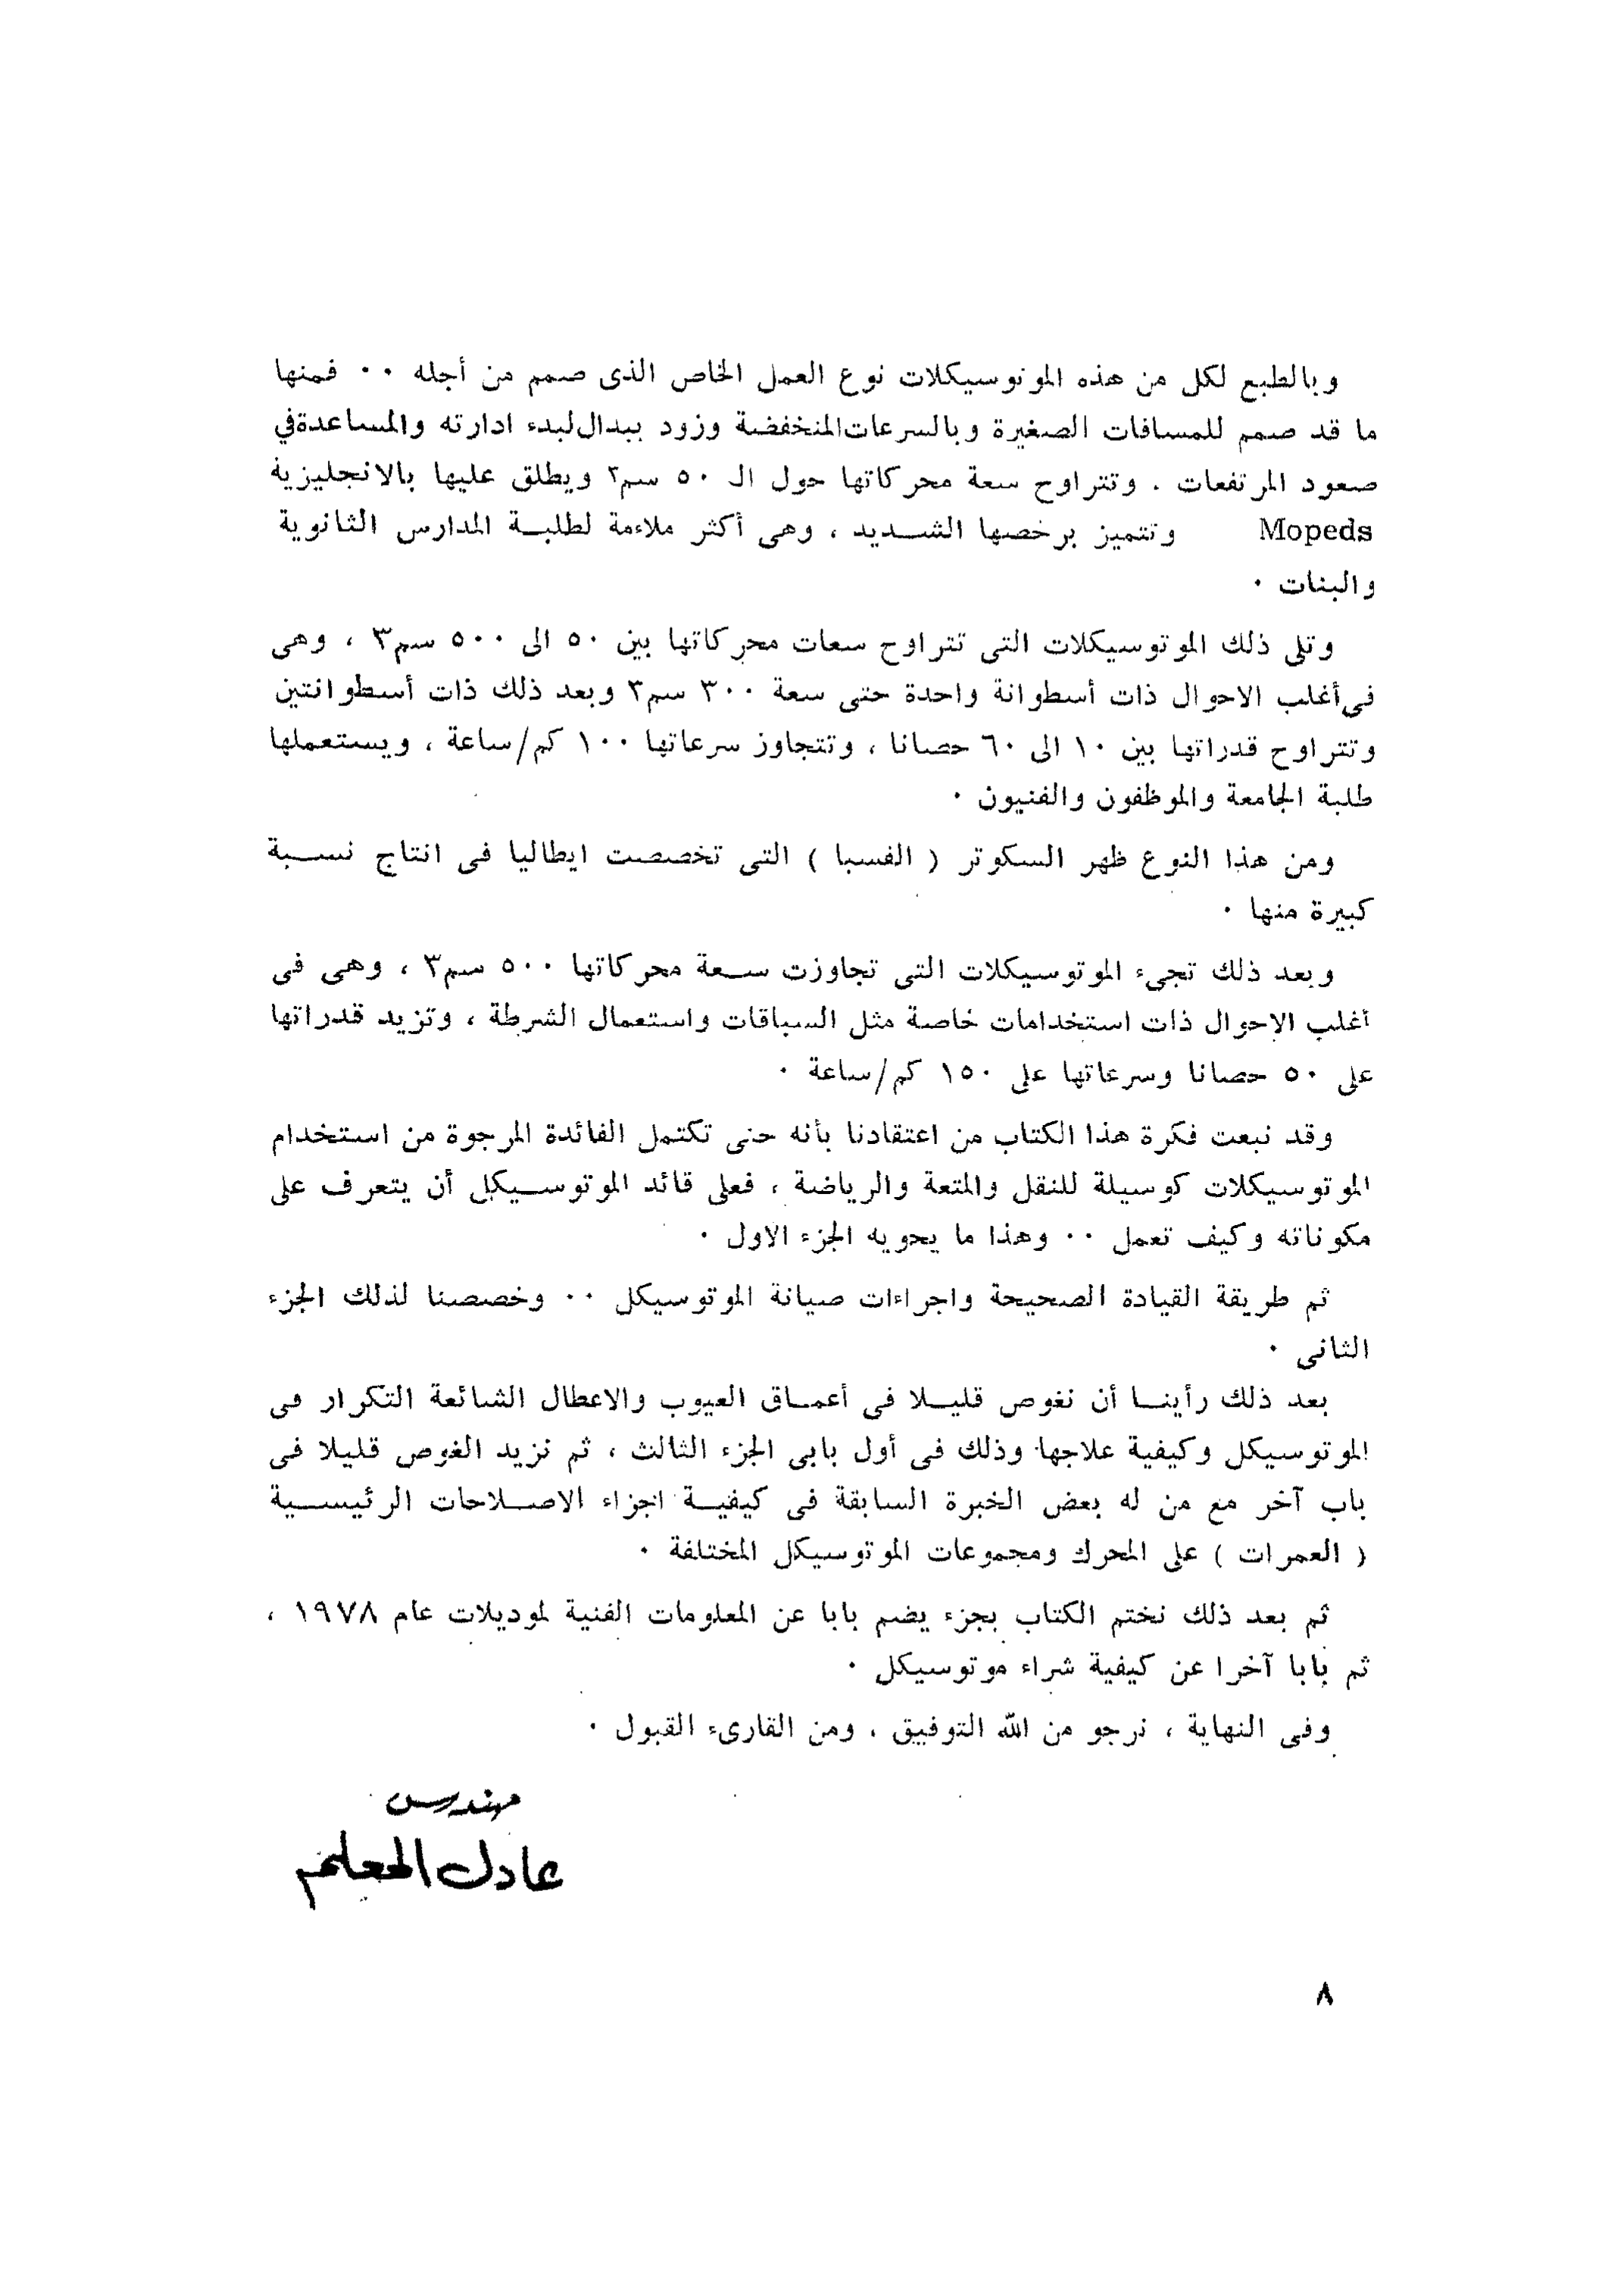 وبالطبع لكل من هذه الموتوسيكلات نوع العمل الخاص الذى صمم من أجله ٠٠ فمنها
ما قد صمم للمسافات الصغيرة وبالسرعات المنخفضة وزود ببدال لبدء ادارته والمساعدة في
صعود المرتفعات . وتتراوح سعة محركاتها حول الـ ٥٠ سم٣ ويطلق عليها بالانجليزية
Mopeds وتتميز برخصها الشديد ، وهى أكثر ملاءمة لطلبة المدارس الثانوية
والبنات ٠
وتلى ذلك الموتوسيكلات التى تتراوح سعات محركاتها بين ٥٠ الى ٥٠٠ سم٣ ، وهى
فى أغلب الاحوال ذات أسطوانة واحدة حتى سعة ٣٠٠ سم٣ وبعد ذلك ذات أسطوانتين
وتتراوح قدراتها بين ١٠ الى ٦٠ حصانا ، وتتجاوز سرعاتها ١٠٠ كم/ساعة ، ويستعملها
طلبة الجامعة والموظفون والفنيون ٠
ومن هذا النوع ظهر السكوتر ( الفسبا ) التى تخصصت ايطاليا فى انتاج نسبة
كبيرة منها ٠
وبعد ذلك تجىء الموتوسيكلات التى تجاوزت سعة محركاتها ٥٠٠ سم٣ ، وهى فى
أغلب الاحوال ذات استخدامات خاصة مثل السباقات واستعمال الشرطة ، وتزيد قدراتها
على ٥٠ حصانا وسرعاتها على ١٥٠ كم/ساعة ٠
وقد نبعت فكرة هذا الكتاب من اعتقادنا بأنه حتى تكتمل الفائدة المرجوة من استخدام
الموتوسيكلات كوسيلة للنقل والمتعة والرياضة ، فعلى قائد الموتوسيكل أن يتعرف على
مكوناته وكيف تعمل ٠٠ وهذا ما يحويه الجزء الاول ٠
ثم طريقة القيادة الصحيحة واجراءات صيانة الموتوسيكل ٠٠ وخصصنا لذلك الجزء
الثانى ٠
بعد ذلك رأينا أن نغوص قليلا فى أعماق العيوب والاعطال الشائعة التكرار فى
الموتوسيكل وكيفية علاجها وذلك فى أول بابى الجزء الثالث ، ثم نزيد الغوص قليلا فى
باب آخر مع من له بعض الخبرة السابقة فى كيفية اجراء الاصلاحات الرئيسية
( العمرات ) على المحرك ومجموعات الموتوسيكل المختلفة ٠
ثم بعد ذلك نختم الكتاب بجزء يضم بابا عن المعلومات الفنية لموديلات عام ١٩٧٨ ،
ثم بابا آخرا عن كيفية شراء موتوسيكل ٠
وفى النهاية ، نرجو من الله التوفيق ، ومن القارىء القبول ٠
مهندس
عادل المعلم
٨